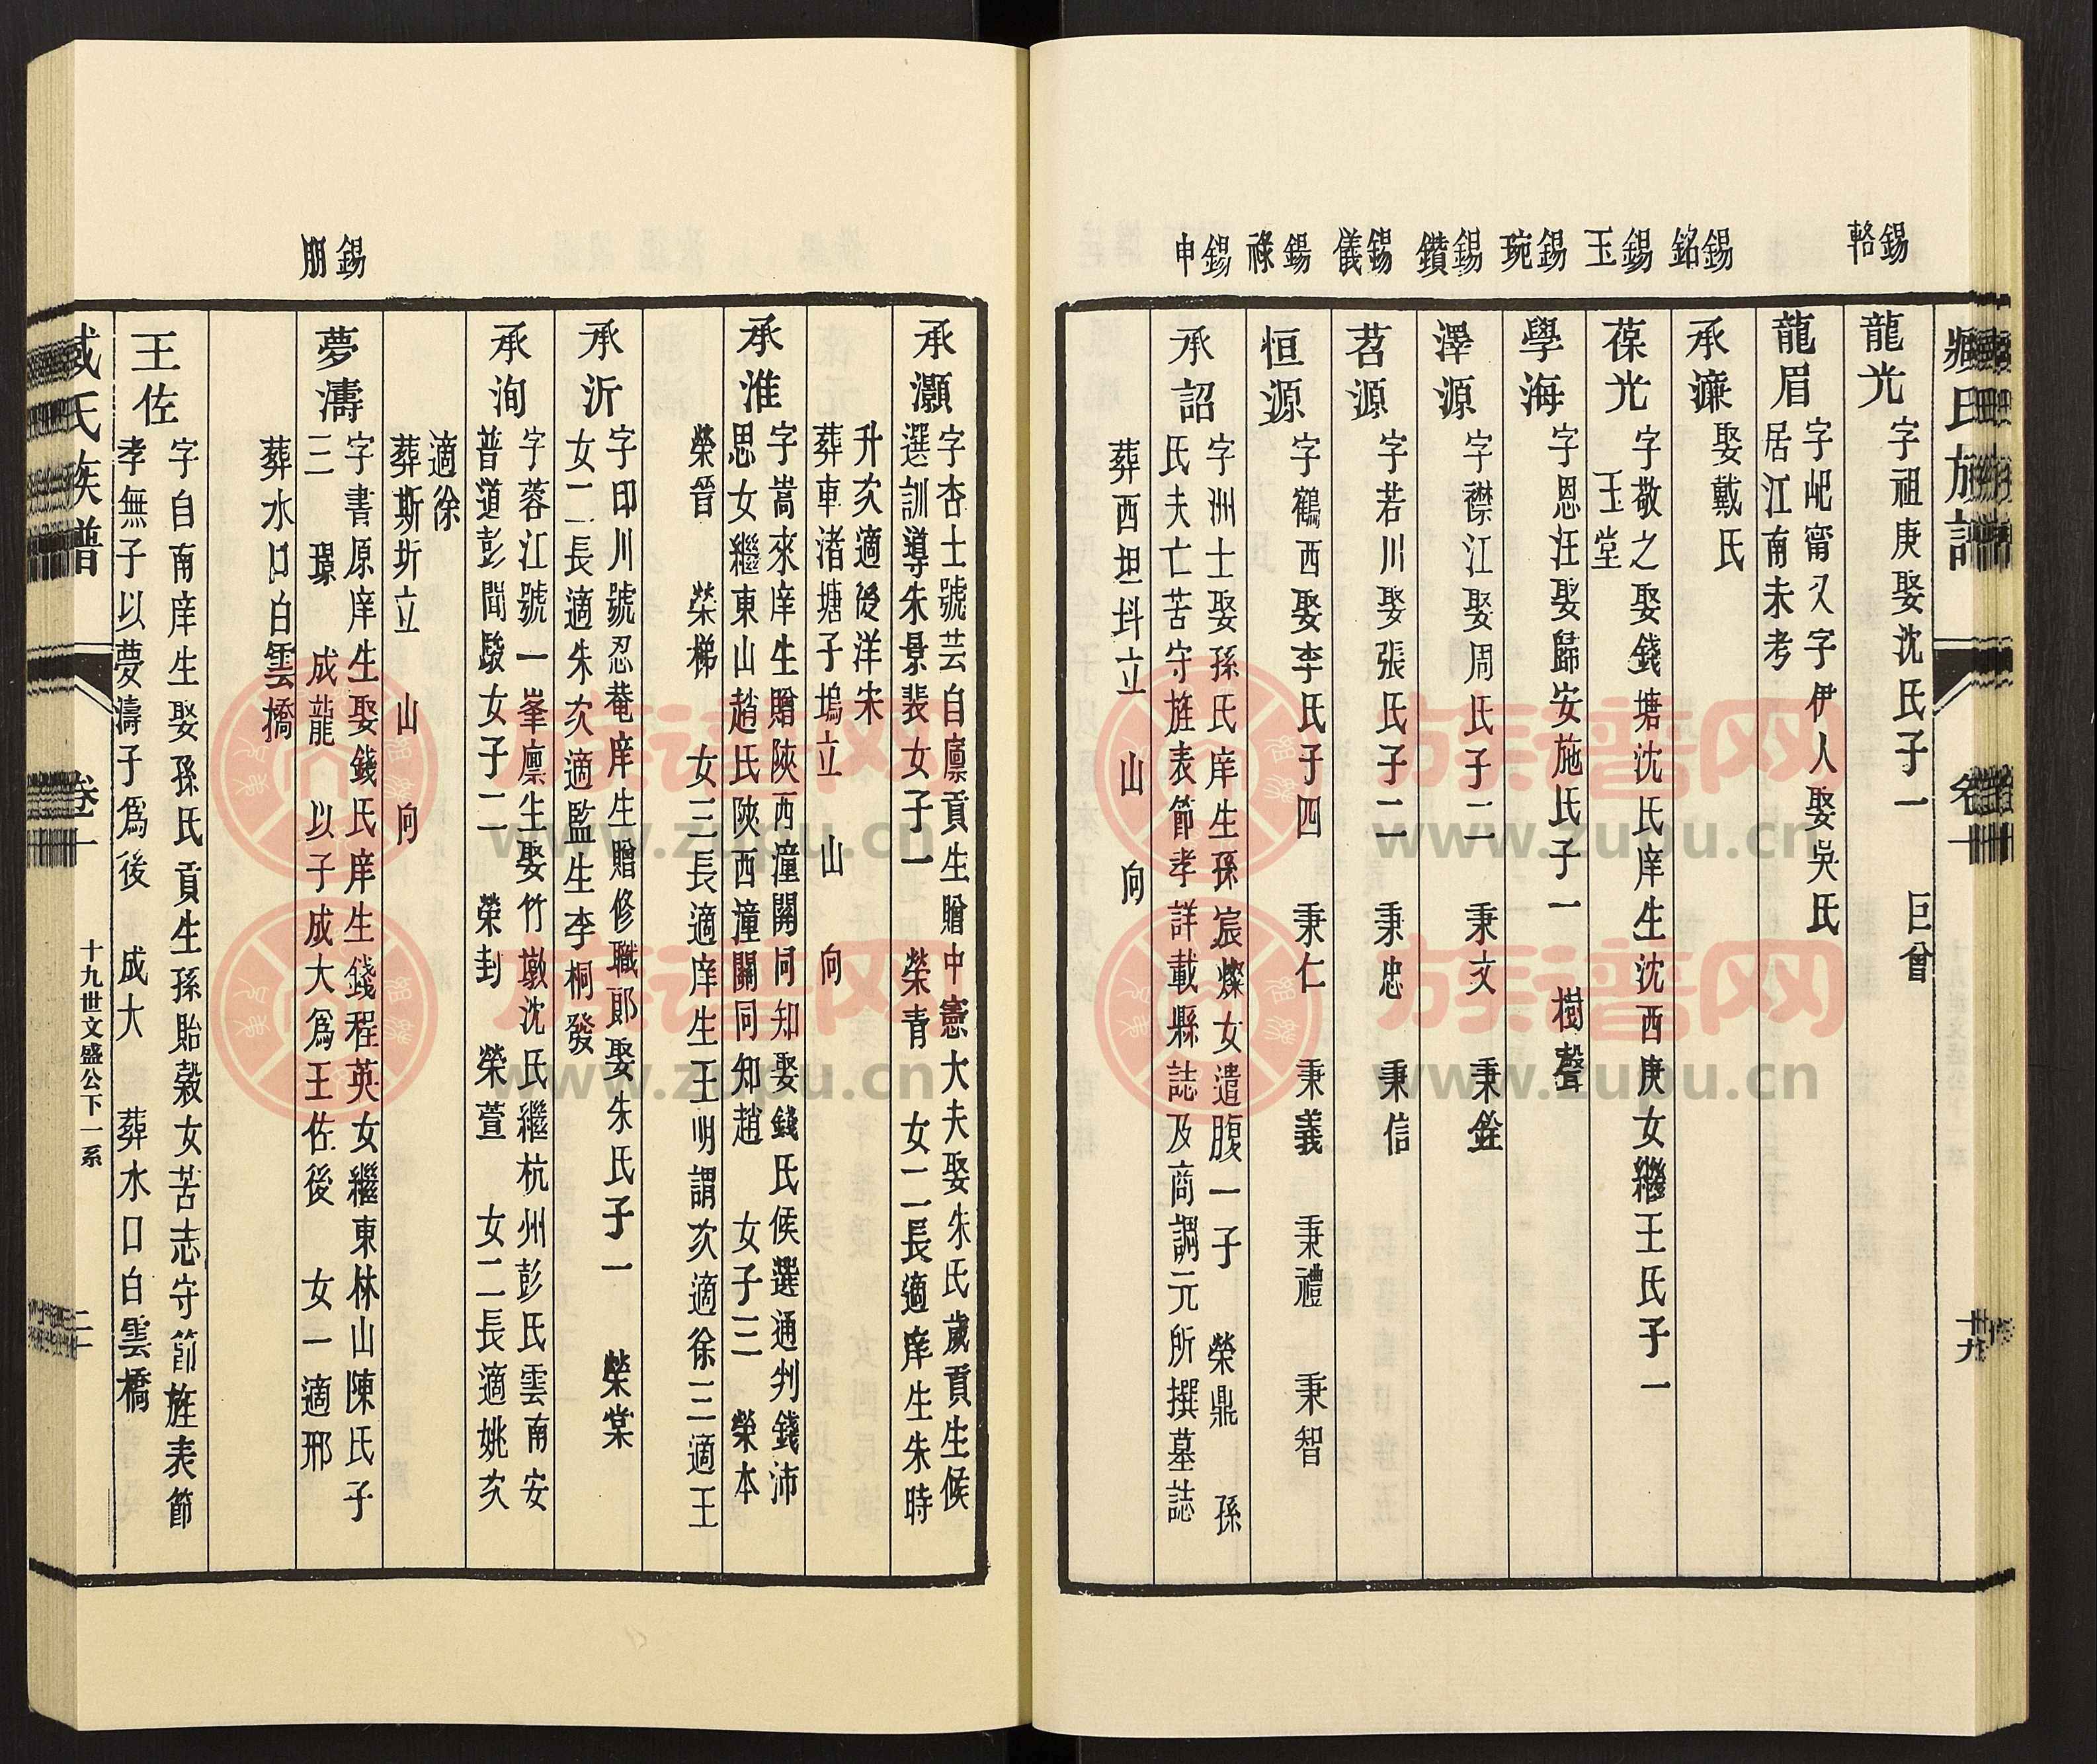 臧氏族譜
卷一
十九
錫輅
龍光
字祖庚娶沈氏子一 巨曾
龍眉
字屺甯又字伊人娶吳氏
居江南未考
錫銘
承濂
娶戴氏
錫玉
葆光
字敬之娶錢塘沈氏庠生沈西庚女繼王氏子一
玉堂
錫琬
學海
字恩汪娶歸安施氏子一 樹聲
錫鑽
澤源
字襟江娶周氏子二 秉文 秉銓
錫儀
苕源
字若川娶張氏子二 秉忠 秉信
錫祿
恒源
字鶴西娶李氏子四 秉仁 秉義 秉禮 秉智
錫申
承詔
字洲士娶孫氏庠生孫宸燦女遺腹一子 榮鼎 孫
氏夫亡苦守旌表節孝詳載縣誌及商調元所撰墓誌
葬西坦抖立 山 向
承灝
字杏士號芸自廩貢生贈中憲大夫娶朱氏歲貢生候
選訓導朱景裴女子一 榮青 女二長適庠生朱時
升次適後洋宋
葬車渚塘子塢立 山 向
承淮
字嵩來庠生贈陝西潼關同知娶錢氏候選通判錢沛
思女繼東山趙氏陝西潼關同知趙 女子三 榮本
榮晉 榮梯 女三長適庠生王明謂次適徐三適王
承沂
字印川號忍菴庠生贈修職郎娶朱氏子一 榮棠
女二長適朱次適監生李桐發
承洵
字蓉江號一峯廩生娶竹墩沈氏繼杭州彭氏雲南安
普道彭聞駿女子二 榮封 榮萱 女二長適姚次
適徐
葬斯圻立 山 向
錫朋
夢濤
字書原庠生娶錢氏庠生錢程英女繼東林山陳氏子
三 璟 成龍 以子成大爲王佐後 女一適邢
葬水口白雲橋
王佐
字自南庠生娶孫氏貢生孫貽穀女苦志守節旌表節
孝無子以夢濤子爲後 成大 葬水口白雲橋
臧氏族譜
卷一
十九世文盛公下一系
二十
族譜网
www.zupu.cn
族譜网
www.zupu.cn
族譜网
www.zupu.cn
族譜网
www.zupu.cn